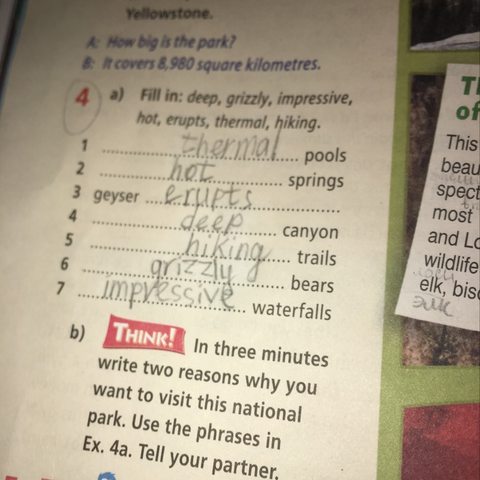 Yellowstone.
A: How big is the park?
B: It covers 8,980 square kilometres.
4 a) Fill in: deep, grizzly, impressive,
hot, erupts, thermal, hiking.
1 thermal pools
2 hot springs
3 geyser erupts
4 deep canyon
5 hiking trails
6 grizzly bears
7 impressive waterfalls
b) THINK! In three minutes
write two reasons why you
want to visit this national
park. Use the phrases in
Ex. 4a. Tell your partner.
of
This
beau
spect
most
and Lo
wildlife
elk, bis